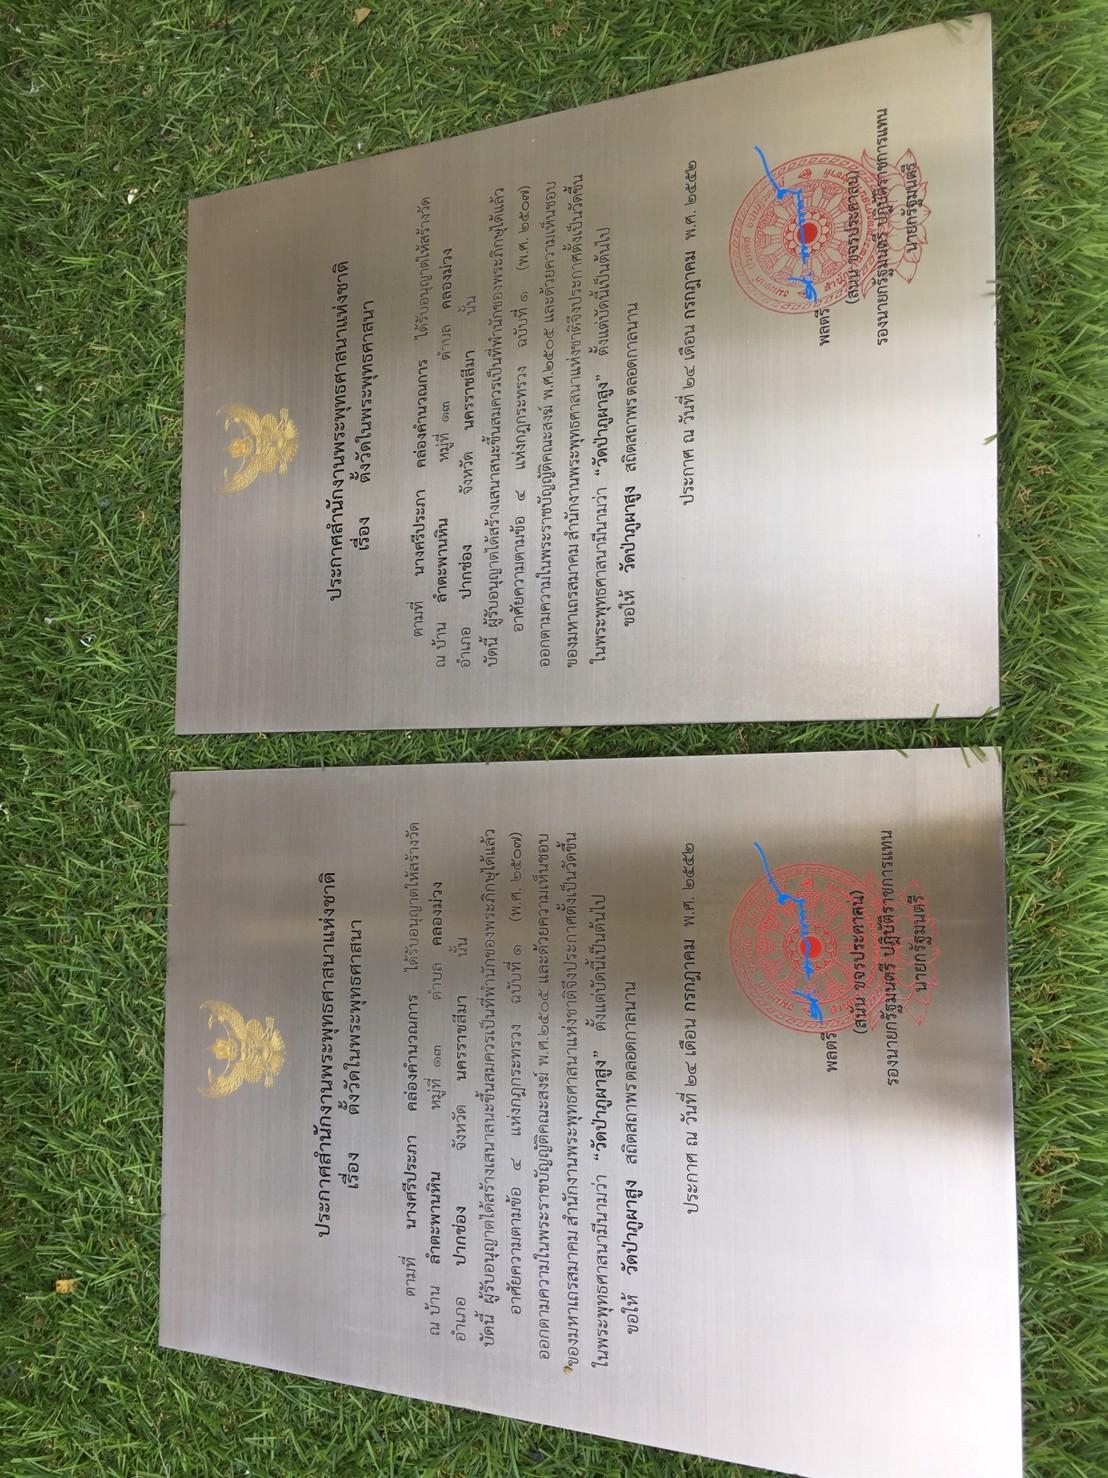 ประกาศสำนักงานพระพุทธศาสนาแห่งชาติ
เรื่อง ตั้งวัดในพระพุทธศาสนา
ตามที่ นางศรีประภา คล่องคำนวณการ ได้รับอนุญาตให้สร้างวัด
ณ บ้าน ลำตะพานหิน หมู่ที่ ๑๓ ตำบล คลองม่วง
อำเภอ ปากช่อง จังหวัด นครราชสีมา นั้น
บัดนี้ ผู้รับอนุญาตได้สร้างเสนาสนะขึ้นสมควรเป็นที่พำนักของพระภิกษุได้แล้ว
อาศัยความตามข้อ ๔ แห่งกฎกระทรวง ฉบับที่ ๑ (พ.ศ. ๒๕๐๗)
ออกตามความในพระราชบัญญัติคณะสงฆ์ พ.ศ.๒๕๐๕ และด้วยความเห็นชอบ
ของมหาเถรสมาคม สำนักงานพระพุทธศาสนาแห่งชาติจึงประกาศตั้งเป็นวัดขึ้น
ในพระพุทธศาสนามีนามว่า “วัดป่าภูผาสูง” ตั้งแต่บัดนี้เป็นต้นไป
ขอให้ วัดป่าภูผาสูง สถิตสถาพรตลอดกาลนาน
ประกาศ ณ วันที่ ๒๔ เดือน กรกฎาคม พ.ศ. ๒๕๕๒
พลตรี
(สนั่น ขจรประศาสน์)
รองนายกรัฐมนตรี ปฏิบัติราชการแทน
นายกรัฐมนตรี
ประกาศสำนักงานพระพุทธศาสนาแห่งชาติ
เรื่อง ตั้งวัดในพระพุทธศาสนา
ตามที่ นางศรีประภา คล่องคำนวณการ ได้รับอนุญาตให้สร้างวัด
ณ บ้าน ลำตะพานหิน หมู่ที่ ๑๓ ตำบล คลองม่วง
อำเภอ ปากช่อง จังหวัด นครราชสีมา นั้น
บัดนี้ ผู้รับอนุญาตได้สร้างเสนาสนะขึ้นสมควรเป็นที่พำนักของพระภิกษุได้แล้ว
อาศัยความตามข้อ ๔ แห่งกฎกระทรวง ฉบับที่ ๑ (พ.ศ. ๒๕๐๗)
ออกตามความในพระราชบัญญัติคณะสงฆ์ พ.ศ.๒๕๐๕ และด้วยความเห็นชอบ
ของมหาเถรสมาคม สำนักงานพระพุทธศาสนาแห่งชาติจึงประกาศตั้งเป็นวัดขึ้น
ในพระพุทธศาสนามีนามว่า “วัดป่าภูผาสูง” ตั้งแต่บัดนี้เป็นต้นไป
ขอให้ วัดป่าภูผาสูง สถิตสถาพรตลอดกาลนาน
ประกาศ ณ วันที่ ๒๔ เดือน กรกฎาคม พ.ศ. ๒๕๕๒
พลตรี
(สนั่น ขจรประศาสน์)
รองนายกรัฐมนตรี ปฏิบัติราชการแทน
นายกรัฐมนตรี